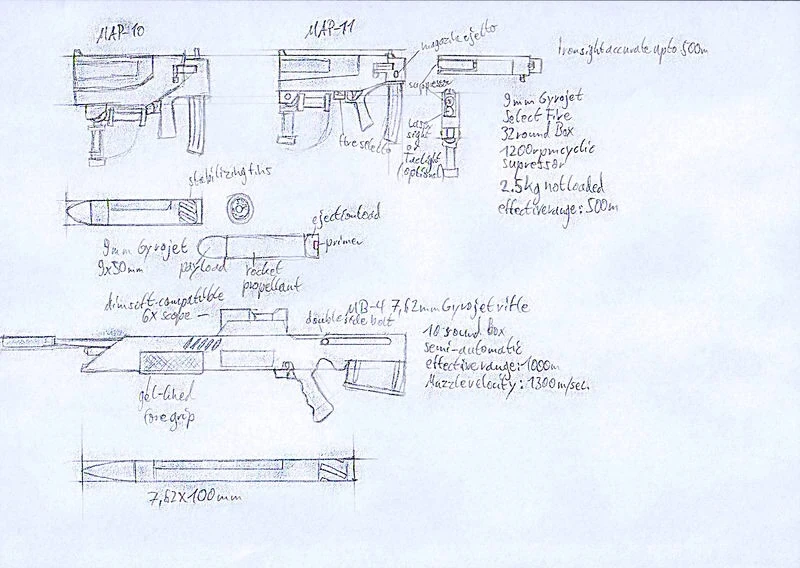 MAP-10
MAP-11
magazine ejector
Iron sight accurate up to 500m
suppressor
9mm Gyrojet
Select Fire
32 round Box
1200rpm cyclic
supressor
2.5kg not loaded
effective range: 500m
Laser
sight
or
Taclight
(optional)
fire selector
stabilizing fins
ejection load
primer
9mm Gyrojet
9x50mm
payload
rocket
propellant
-compatible
6x scope
double side bolt
MB-4 7,62mm Gyrojet rifle
10 round box
semi-automatic
effective range: 1000m
Muzzle velocity: 1300m/sec.
gel-lined
foregrip
7,62x100mm